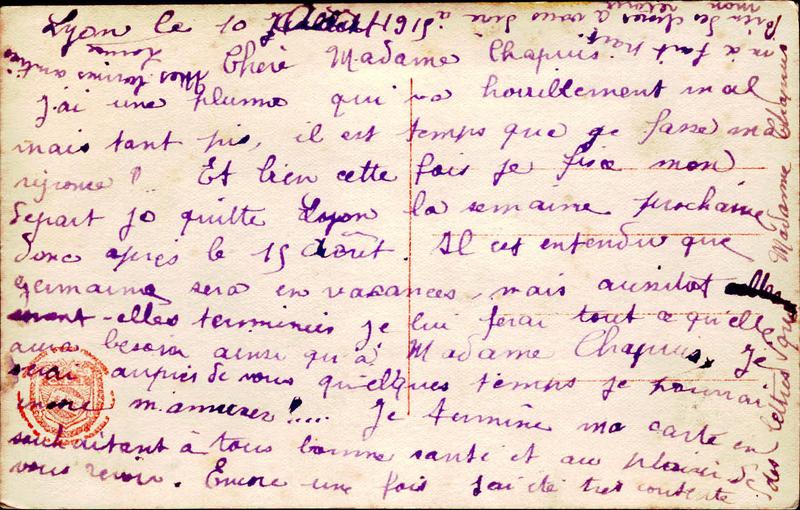 Lyon le 10 Août 1915
Chère Madame Chapuis
j'ai une plume qui va horriblement mal
mais tant pis, il est temps que je fasse ma
réponse ! Et bien cette fois je fixe mon
départ je quitte Lyon la semaine prochaine
donc après le 15 Août. Il est entendu que
Germaine sera en vacances, mais aussitôt
elles terminées je lui ferai tout ce qu'elle
aura besoin ainsi qu'à Madame Chapuis, je
serai auprès de vous quelques temps je pourrai
m'amuser !.... Je termine ma carte en
souhaitant à tous bonne santé et au plaisir de
vous revoir. Encore une fois j'ai été très contente
des lettres que Madame Chapuis
m'a fait
Bien des choses à vous dire à
mon retour
Louise